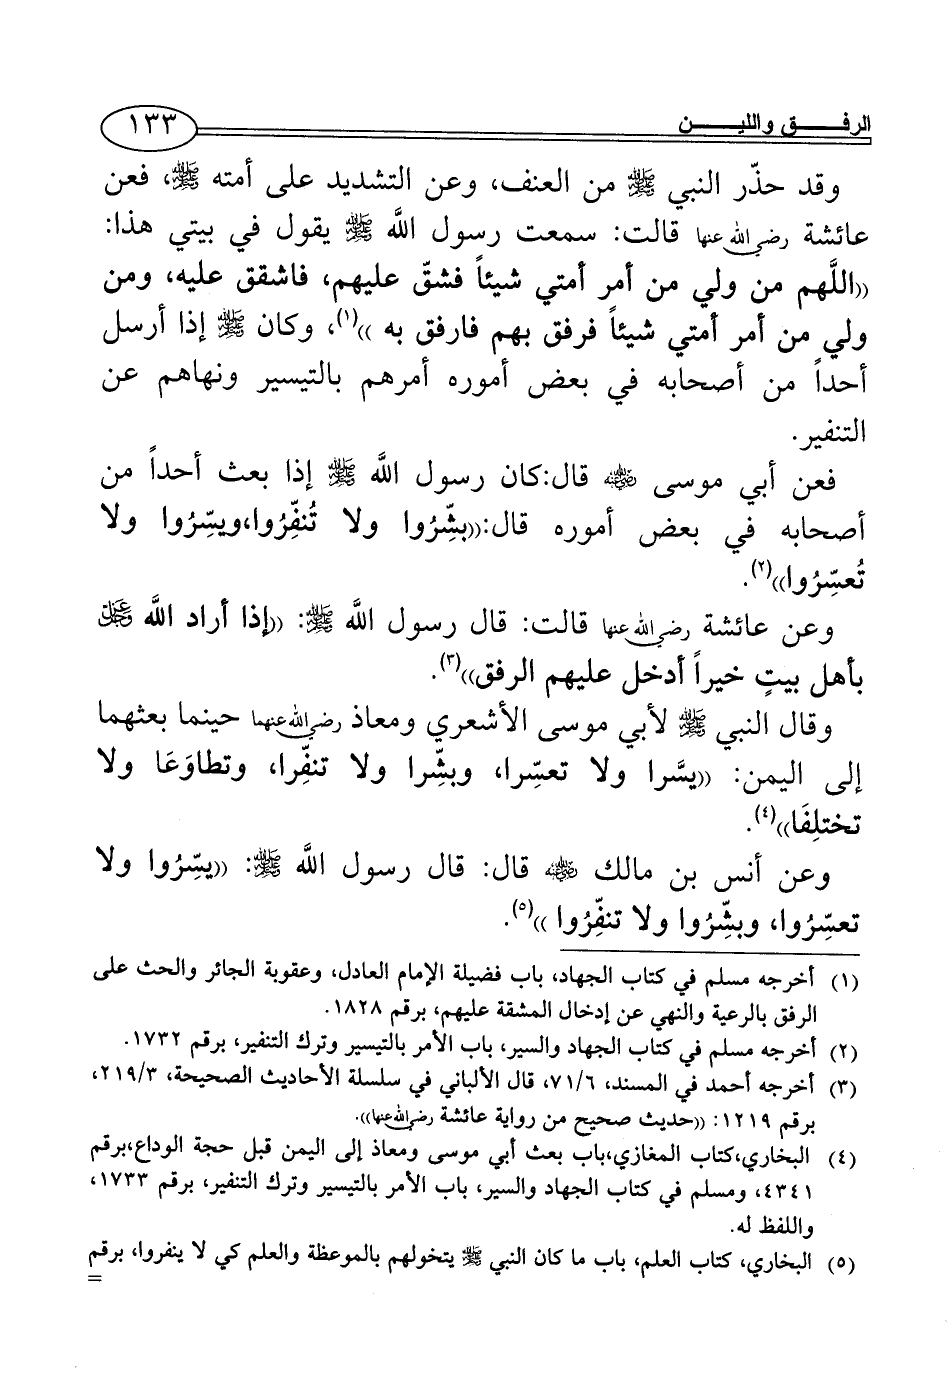 الرفـــق والليـــن
١٣٣
وقد حذّر النبي ﷺ من العنف، وعن التشديد على أمته ﷺ، فعن
عائشة رضي الله عنها قالت: سمعت رسول اللَّه ﷺ يقول في بيتي هذا:
((اللَّهم من ولي من أمر أمتي شيئاً فشقّ عليهم، فاشقق عليه، ومن
ولي من أمر أمتي شيئاً فرفق بهم فارفق به ))(١)، وكان ﷺ إذا أرسل
أحداً من أصحابه في بعض أموره أمرهم بالتيسير ونهاهم عن
التنفير.
فعن أبي موسى رضي الله عنه قال:كان رسول اللَّه ﷺ إذا بعث أحداً من
أصحابه في بعض أموره قال:((بشِّرُوا ولا تُنفِّرُوا،ويسِّرُوا ولا
تُعسِّرُوا))(٢).
وعن عائشة رضي الله عنها قالت: قال رسول اللَّه ﷺ: ((إذا أراد اللَّه عز وجل
بأهل بيتٍ خيراً أدخل عليهم الرفق))(٣).
وقال النبي ﷺ لأبي موسى الأشعري ومعاذ رضي الله عنهما حينما بعثهما
إلى اليمن: ((يسَّرا ولا تعسِّرا، وبشِّرا ولا تنفِّرا، وتطاوَعَا ولا
تختلِفَا))(٤).
وعن أنس بن مالك رضي الله عنه قال: قال رسول اللَّه ﷺ: ((يسِّرُوا ولا
تعسِّرُوا، وبشِّرُوا ولا تنفِّرُوا ))(٥).
(١) أخرجه مسلم في كتاب الجهاد، باب فضيلة الإمام العادل، وعقوبة الجائر والحث على
الرفق بالرعية والنهي عن إدخال المشقة عليهم، برقم ١٨٢٨.
(٢) أخرجه مسلم في كتاب الجهاد والسير، باب الأمر بالتيسير وترك التنفير، برقم ١٧٣٢.
(٣) أخرجه أحمد في المسند، ٧١/٦، قال الألباني في سلسلة الأحاديث الصحيحة، ٢١٩/٣،
برقم ١٢١٩: ((حديث صحيح من رواية عائشة رضي الله عنها)).
(٤) البخاري،كتاب المغازي،باب بعث أبي موسى ومعاذ إلى اليمن قبل حجة الوداع،برقم
٤٣٤١، ومسلم في كتاب الجهاد والسير، باب الأمر بالتيسير وترك التنفير، برقم ١٧٣٣،
واللفظ له.
(٥) البخاري، كتاب العلم، باب ما كان النبي ﷺ يتخولهم بالموعظة والعلم كي لا ينفروا، برقم
=